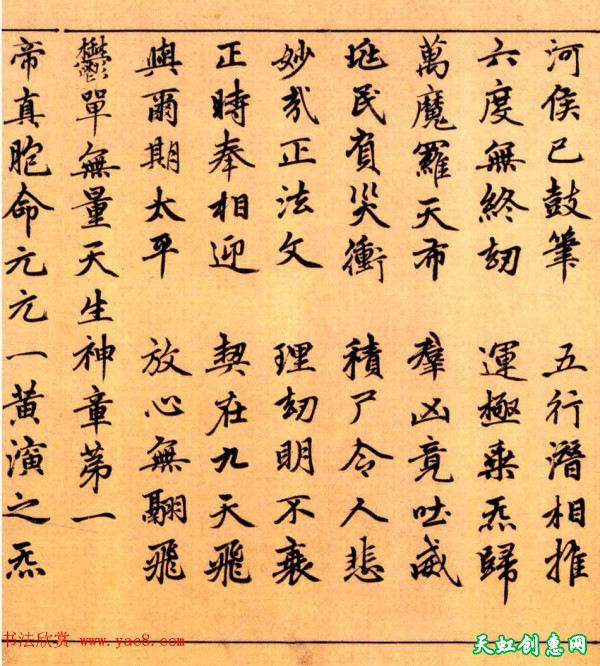 河侯已鼓筆 五行潛相推
六度無終劫 運極乘炁歸
萬魔羅天布 羣凶竟吐威
民負災衝 積尸令人悲
妙哉正法文 理劫明不衰
正時奉相迎 契在九天飛
與爾期太平 放心無翮飛
鬱單無量天生神章第一
帝真胞命元元一黃演之炁
书法欣赏 www.yac8.com
天虹创惠网